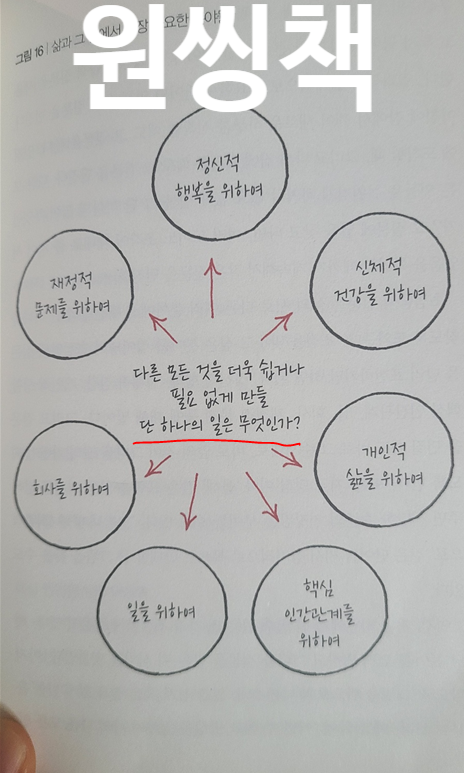 원씽책
그림 16 | 삶과 그
에서
장
요한
정신적
행복을 위하여
신체적
건강을 위하여
재정적
문제를 위하여
다른 모든 것을 더욱 쉽거나
필요 없게 만들
단 하나의 일은 무엇인가?
개인적
삶을 위하여
회사를 위하여
일을 위하여
핵심
인간관계를
위하여